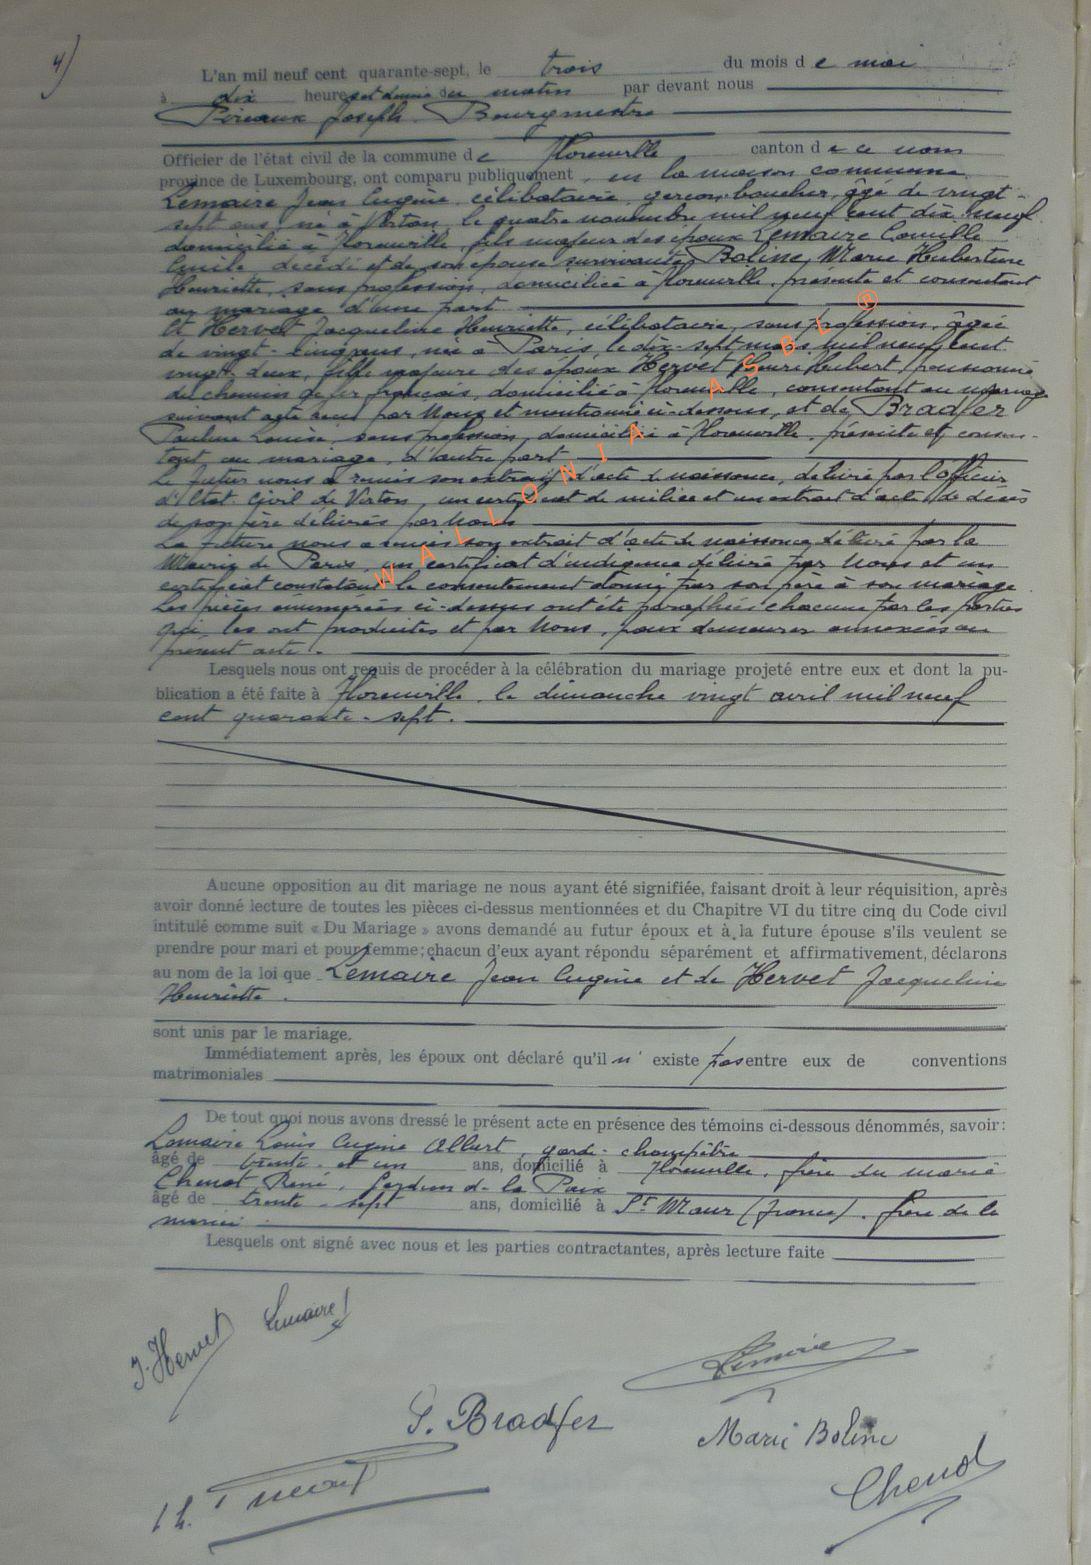 4)
L'an mil neuf cent quarante-sept, le trois du mois de mai
à dix heures et demie du matin par devant nous
Joseph Bourgmestre
Officier de l'état civil de la commune de Florenville canton de ce nom
province de Luxembourg, ont comparu publiquement, en la maison commune
Lemaire Jean Eugène, célibataire, garçon-boucher, âgé de vingt-
sept ans, né à Virton, le quatre novembre mil neuf cent dix-neuf
domicilié à Florenville, fils majeur des époux Lemaire Camille
Emile, décédé et de son épouse survivante Boline Marie Hubertine
Henriette, sans profession, domiciliée à Florenville, présente et consentant
au mariage, d'une part
Et Hervet Jacqueline Henriette, célibataire, sans profession, âgée
de vingt-cinq ans, née à Paris, le dix-sept mars mil neuf cent
vingt-deux, fille majeure des époux Hervet Henri Hubert, pensionné
de chemin de fer français, domicilié à Florenville, consentant au mariage
suivant acte reçu par Nous et mentionné ci-dessous, et de Bradfer
Pauline Louise, sans profession, domiciliée à Florenville, présente et consen-
tant au mariage, d'autre part
Le futur nous a remis son extrait d'acte de naissance, délivré par l'Officier
d'Etat-Civil de Virton, un certificat de milice et un extrait d'acte de décès
de son père délivrés par Nous
La future nous a remis son extrait d'acte de naissance délivré par la
Mairie de Paris, un certificat d'indigence délivré par Nous et un
certificat constatant le consentement donné par son père à son mariage
Les pièces énumérées ci-dessus ont été paraphées chacune par les parties
qui les ont produites et par Nous, pour demeurer annexées au
présent acte.
Lesquels nous ont requis de procéder à la célébration du mariage projeté entre eux et dont la pu-
blication a été faite à Florenville, le dimanche vingt avril mil neuf
cent quarante-sept.
Aucune opposition au dit mariage ne nous ayant été signifiée, faisant droit à leur réquisition, après
avoir donné lecture de toutes les pièces ci-dessus mentionnées et du Chapitre VI du titre cinq du Code civil
intitulé comme suit « Du Mariage » avons demandé au futur époux et à la future épouse s'ils veulent se
prendre pour mari et pour femme; chacun d'eux ayant répondu séparément et affirmativement, déclarons
au nom de la loi que Lemaire Jean Eugène et de Hervet Jacqueline
Henriette.
sont unis par le mariage.
Immédiatement après, les époux ont déclaré qu'il n'existe pas entre eux de conventions
matrimoniales
De tout quoi nous avons dressé le présent acte en présence des témoins ci-dessous dénommés, savoir:
Lemaire Louis Eugène Albert, garde-champêtre
âgé de trente-et-un ans, domicilié à Florenville, frère du marié
Chenot René, Gardien de la Paix
âgé de trente-sept ans, domicilié à St Maur (France), frère de la
mariée.
Lesquels ont signé avec nous et les parties contractantes, après lecture faite
J. Hervet Lemaire
Lemaire
P. Bradfer
Marie Boline
Chenot
WALLONIA ASBL ®